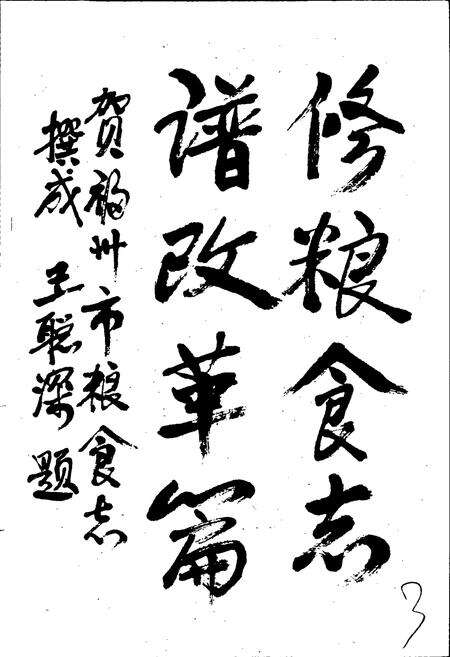 修粮食志
谱改革篇
贺福州市粮食志
撰成 王聪深 题
3